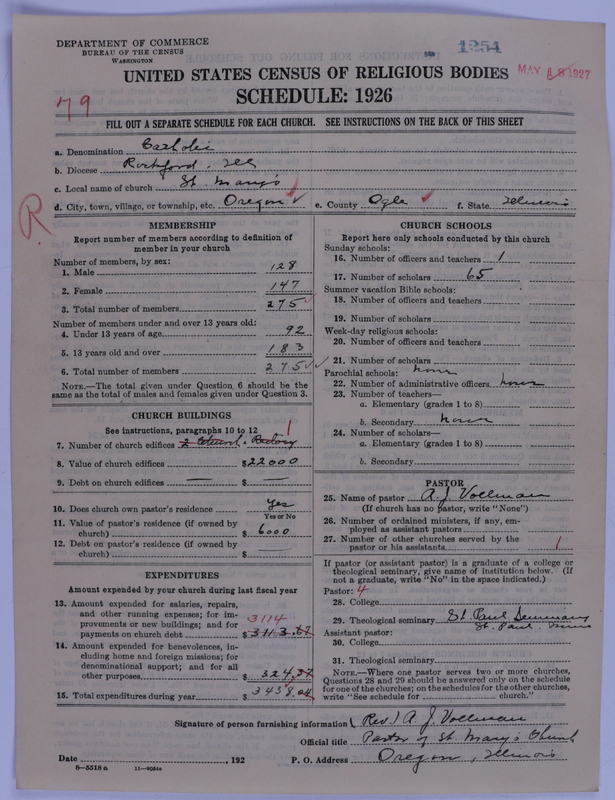 DEPARTMENT OF COMMERCE
BUREAU OF THE CENSUS
WASHINGTON
1254
MAY 18 1927
UNITED STATES CENSUS OF RELIGIOUS BODIES
SCHEDULE: 1926
79
FILL OUT A SEPARATE SCHEDULE FOR EACH CHURCH. SEE INSTRUCTIONS ON THE BACK OF THIS SHEET
a. Denomination Catholic
b. Diocese Rockford, Ill
c. Local name of church St. Mary's
d. City, town, village, or township, etc. Oregon e. County Ogle f. State Illinois
R
MEMBERSHIP
Report number of members according to definition of
member in your church
Number of members, by sex:
1. Male 128
2. Female 147
3. Total number of members 275
Number of members under and over 13 years old:
4. Under 13 years of age 92
5. 13 years old and over 183
6. Total number of members 275
NOTE.—The total given under Question 6 should be the
same as the total of males and females given under Question 3.
CHURCH BUILDINGS
See instructions, paragraphs 10 to 12
7. Number of church edifices 2 Church & Rectory 1
8. Value of church edifices $22000
9. Debt on church edifices $
10. Does church own pastor's residence Yes
Yes or No
11. Value of pastor's residence (if owned by
church) $ 6000
12. Debt on pastor's residence (if owned by
church) $
EXPENDITURES
Amount expended by your church during last fiscal year
13. Amount expended for salaries, repairs,
and other running expenses; for im-
provements or new buildings; and for 3114
payments on church debt $
14. Amount expended for benevolences, in-
cluding home and foreign missions; for
denominational support; and for all
other purposes $ 324.37
15. Total expenditures during year $ 3438.04
CHURCH SCHOOLS
Report here only schools conducted by this church
Sunday schools:
16. Number of officers and teachers 1
17. Number of scholars 65
Summer vacation Bible schools:
18. Number of officers and teachers
19. Number of scholars
Week-day religious schools:
20. Number of officers and teachers
21. Number of scholars
Parochial schools: none
22. Number of administrative officers none
23. Number of teachers—
a. Elementary (grades 1 to 8)
b. Secondary none
24. Number of scholars—
a. Elementary (grades 1 to 8)
b. Secondary
PASTOR
25. Name of pastor A. J. Vollman
(If church has no pastor, write "None")
26. Number of ordained ministers, if any, em-
ployed as assistant pastors
27. Number of other churches served by the
pastor or his assistants 1
If pastor (or assistant pastor) is a graduate of a college or
theological seminary, give name of institution below. (If
not a graduate, write "No" in the space indicated.)
Pastor: 4
28. College
29. Theological seminary St. Paul Seminary
St. Paul Minn
Assistant pastor:
30. College
31. Theological seminary
NOTE.—Where one pastor serves two or more churches,
Questions 28 and 29 should be answered only on the schedule
for one of the churches; on the schedules for the other churches,
write "See schedule for church."
Signature of person furnishing information (Rev.) A. J. Vollman
Official title Pastor of St. Mary's Church
Date , 192 P. O. Address Oregon, Illinois
8—5518 a 11—9034a